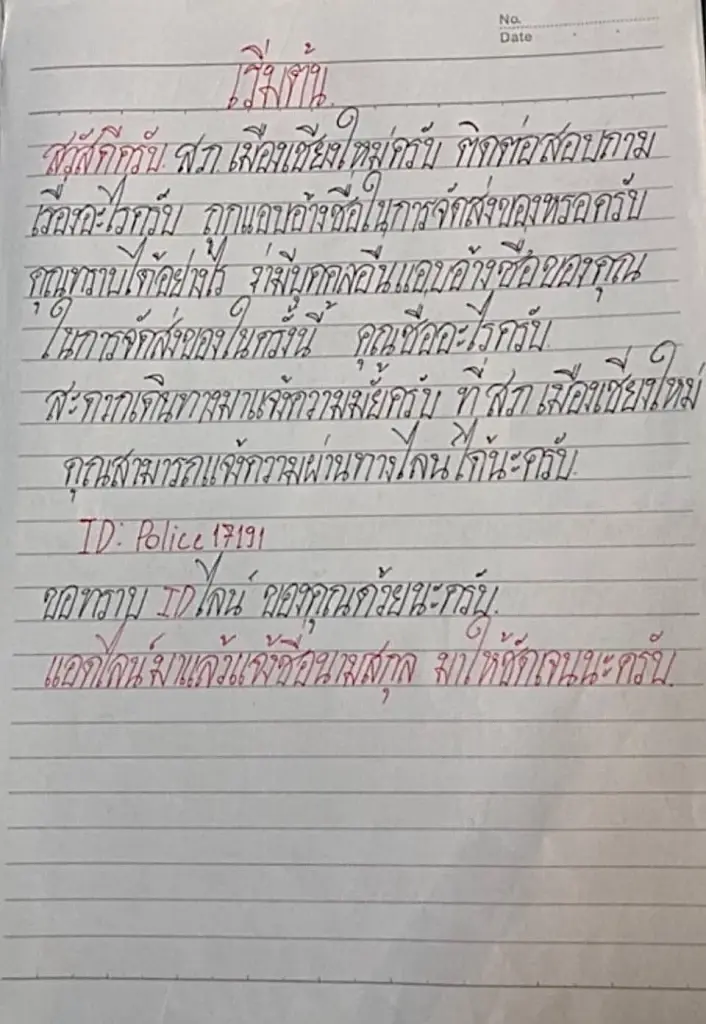 No.
Date
เริ่มต้น
สวัสดีครับ สภ เมืองเชียงใหม่ครับ ติดต่อสอบถาม
เรื่องอะไรครับ ถูกแอบอ้างชื่อในการจัดส่งของหรอครับ
คุณทราบได้อย่างไร ว่ามีบุคคลอื่นแอบอ้างชื่อของคุณ
ในการจัดส่งของในครั้งนี้ คุณชื่ออะไรครับ
สะดวกเดินทางมาแจ้งความมั้ยครับ ที่ สภ เมืองเชียงใหม่
คุณสามารถแจ้งความผ่านทางไลน์ได้นะครับ
ID: Police17191
ขอทราบ IDไลน์ ของคุณด้วยนะครับ
แอดไลน์มาแล้วแจ้งชื่อนามสกุล มาให้ชัดเจนนะครับ